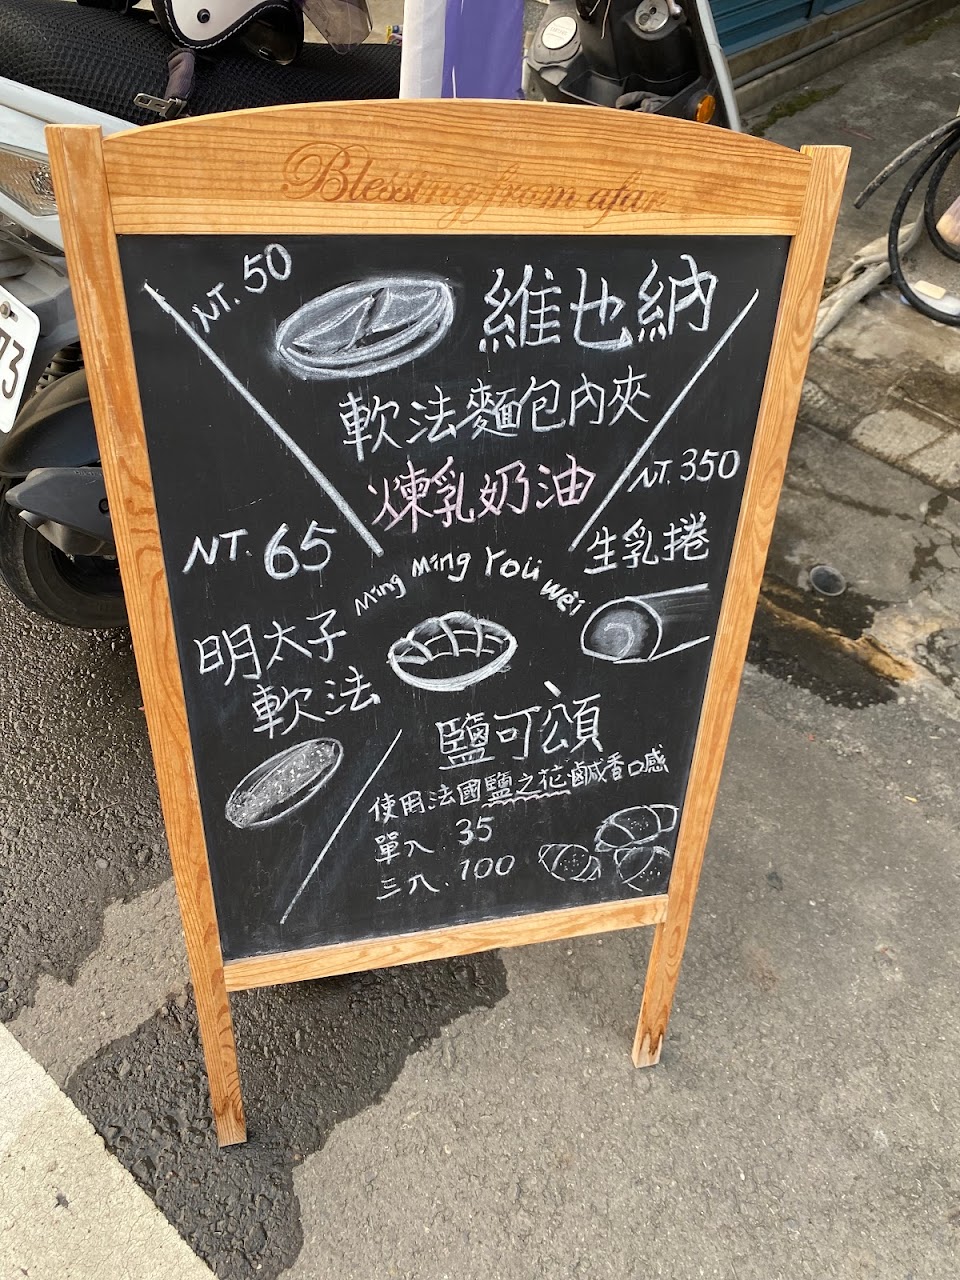 Blessing from afar
NT. 50
維也納
軟法麵包內夾
煉乳奶油
NT. 350
生乳捲
NT. 65
明太子
軟法
Ming Ming You Wei
鹽可頌
使用法國鹽之花鹹香口感
單入. 35
三入. 100
73